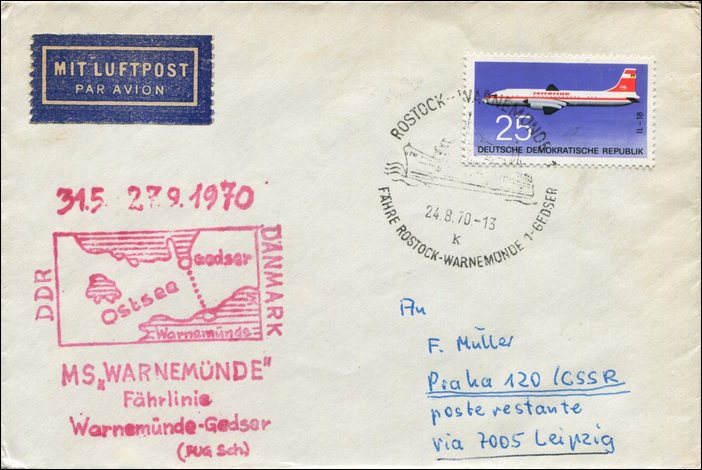 MIT LUFTPOST
PAR AVION
INTERFLUG
25
IL-18
DEUTSCHE DEMOKRATISCHE REPUBLIK
ROSTOCK-WARNEMÜNDE
24.8.70-13
K
FÄHRE ROSTOCK-WARNEMÜNDE 1-GEDSER
31.5 27.9.1970
DDR
Gedser
Ostsee
Warnemünde
DÄNMARK
MS „WARNEMÜNDE"
Fährlinie
Warnemünde-Gedser
(FUG Sch)
An
F. Müller
Praha 120 /CSSR
poste restante
via 7005 Leipzig